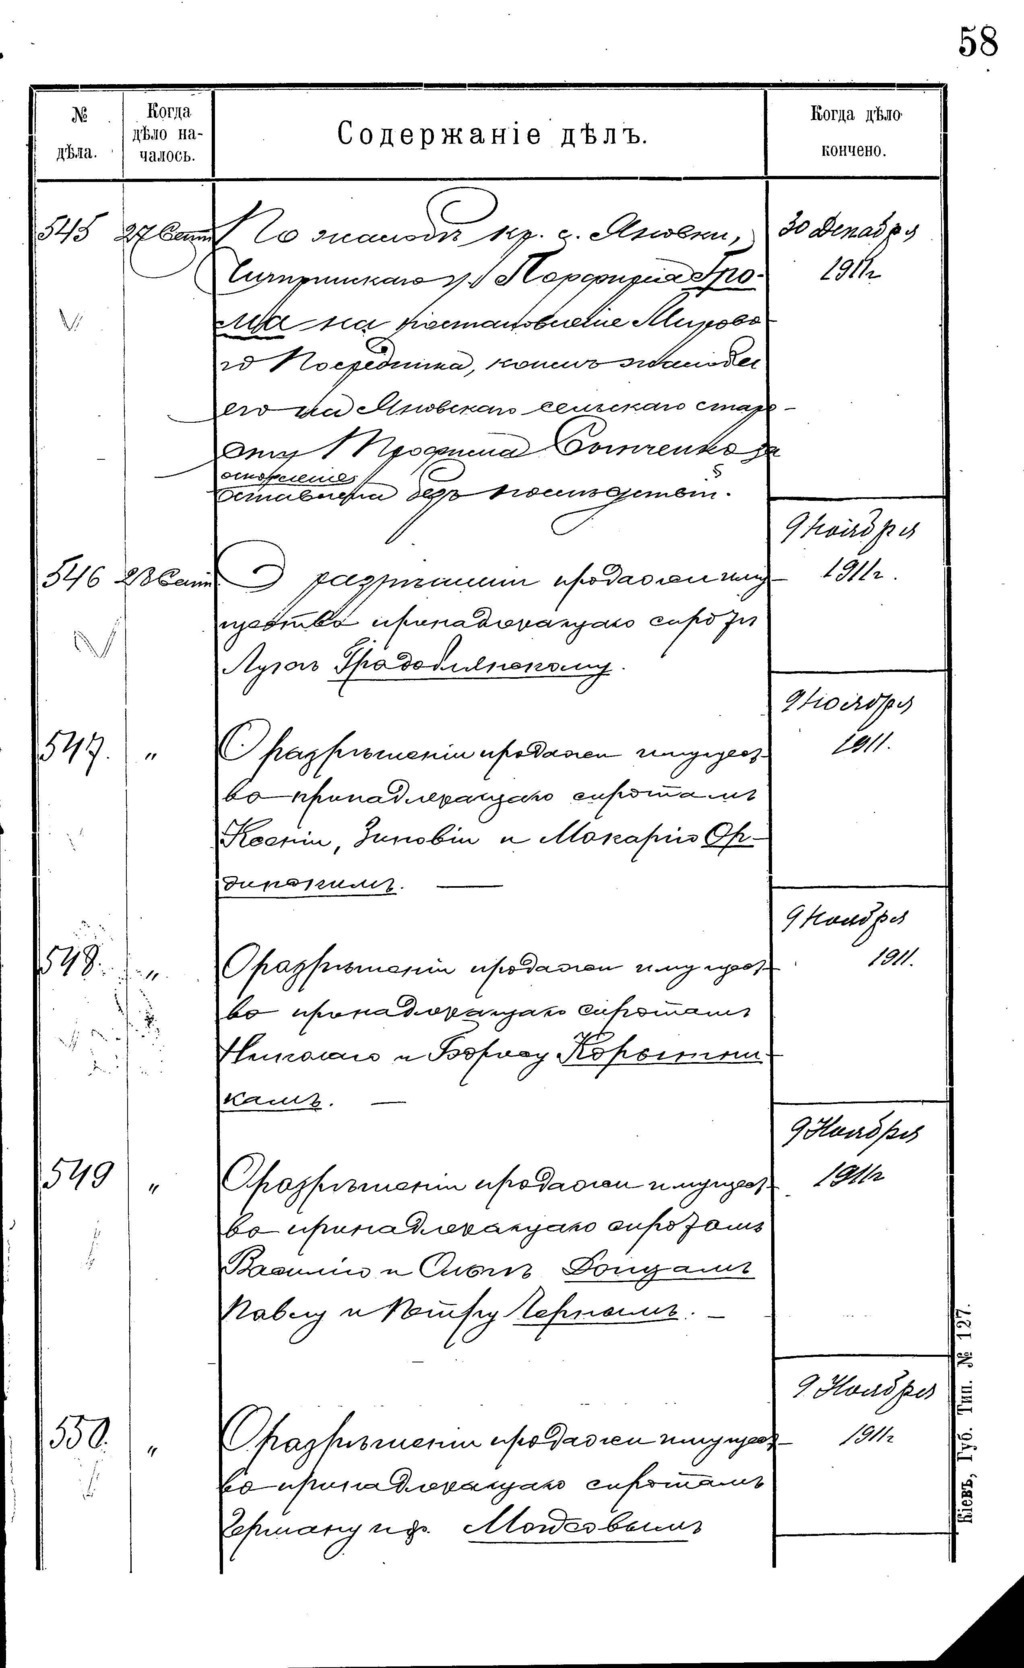 58
№ дѣла.
Когда дѣло началось.
Содержаніе дѣлъ.
Когда дѣло кончено.
545 27 Сент По жалобѣ кр. с. Яновки, 30 Декабря
Чигиринскаго у. Порфирія Гро- 1911г
ма на постановленіе Мирово
го Посредника, коимъ жалоба
его на Яновскаго сельскаго старо-
сту Трофима за
оскорбленіе
оставлена безъ послѣдствій.
9 Ноября
546 28 Сент О разрѣшеніи продажи иму- 1911г.
щества принадлежащаго сиротѣ
Градоблянскому.
9 Ноября
547. " О разрѣшеніи продажи имущест- 1911.
во принадлежащаго сиротамъ
Ксеніи, Зиновіи и Макарію Ор-
динскимъ.
9 Ноября
548. " О разрѣшеніи продажи имущест- 1911.
во принадлежащаго сиротамъ
Николаю и Борису Корытни-
камъ.
9 Ноября
549 " О разрѣшеніи продажи имущест- 1911г
во принадлежащаго сиротамъ
Василію и Ольгѣ
Павлу и Петру Чернымъ.
9 Ноября
550. " О разрѣшеніи продажи имущест- 1911г
во принадлежащаго сиротамъ
Герману и др.
Кіевъ, Губ. Тип. № 127.